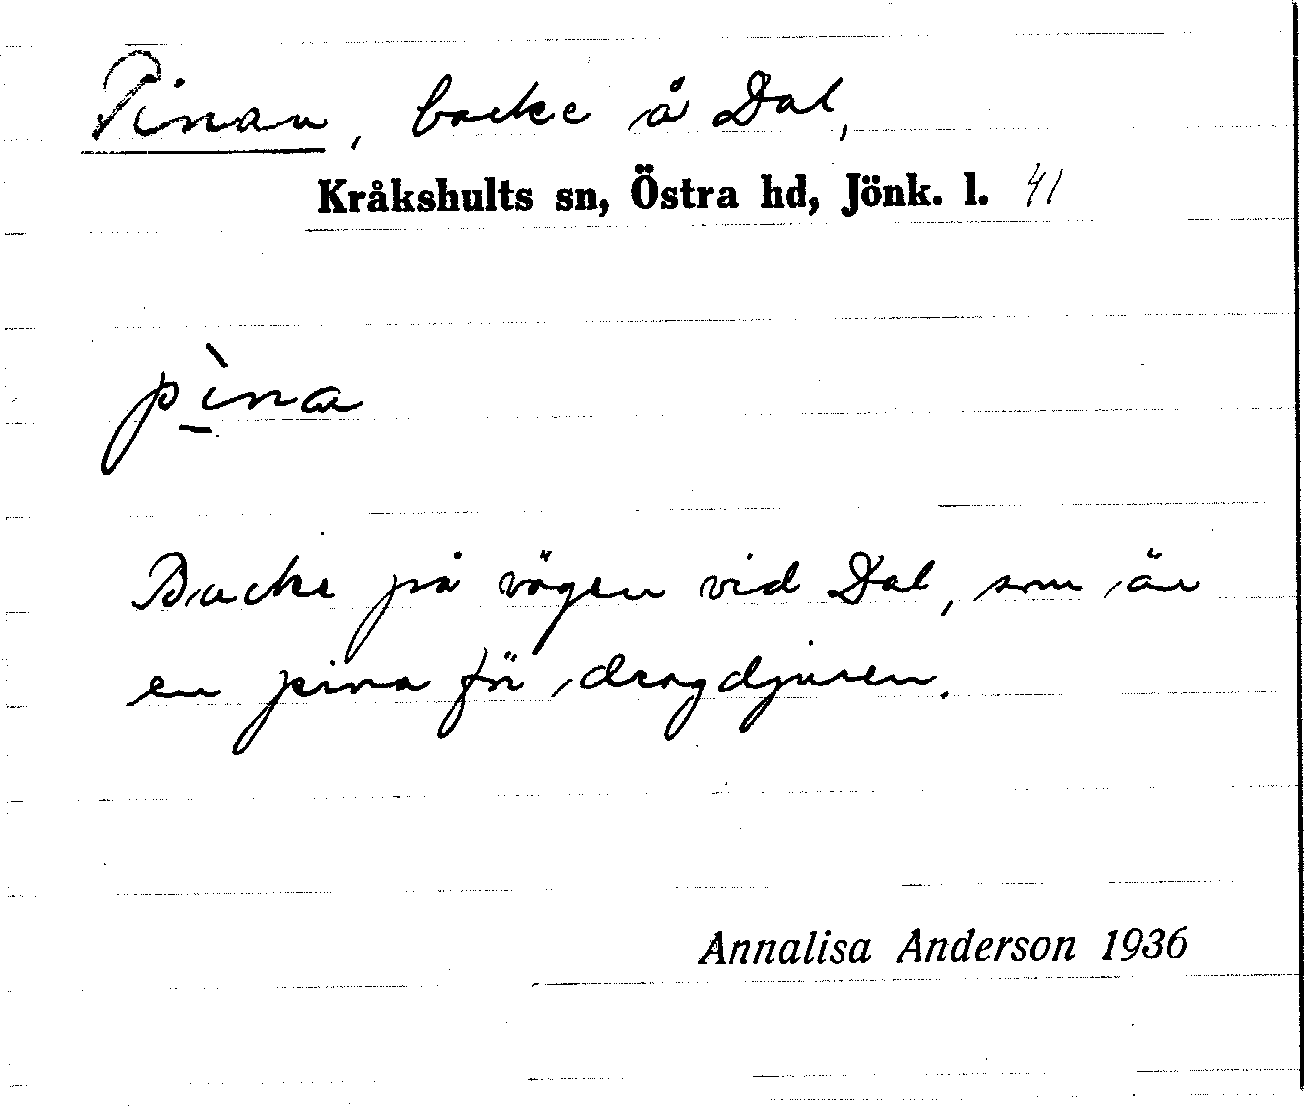 Pinan, backe å Dal,
Kråkshults sn, Östra hd, Jönk. l. 41
pìna
Backe på vägen vid Dal, som är
en pina för dragdjuren.
Annalisa Anderson 1936